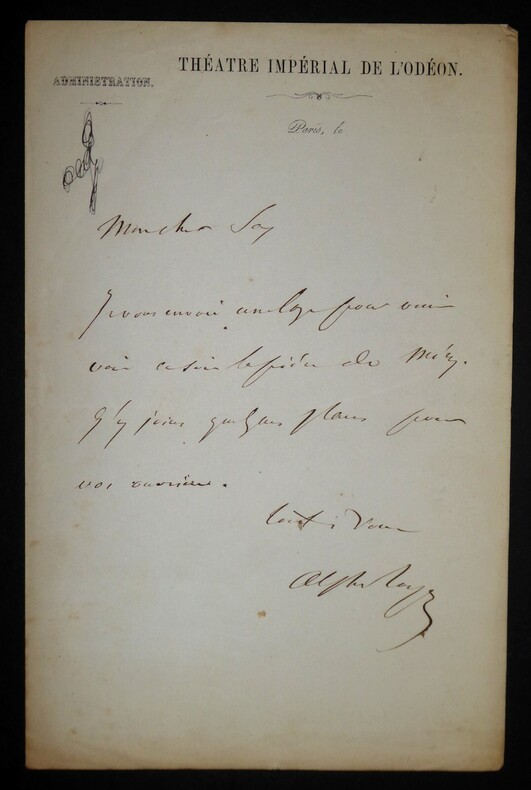 THÉATRE IMPÉRIAL DE L'ODÉON.
ADMINISTRATION.
Paris, le
Mon cher Say
Je vous envoie une loge pour venir
voir ce soir la pièce de Méry.
J'y joins quelques places pour
vos ouvriers.
tout à vous
Alph Royer